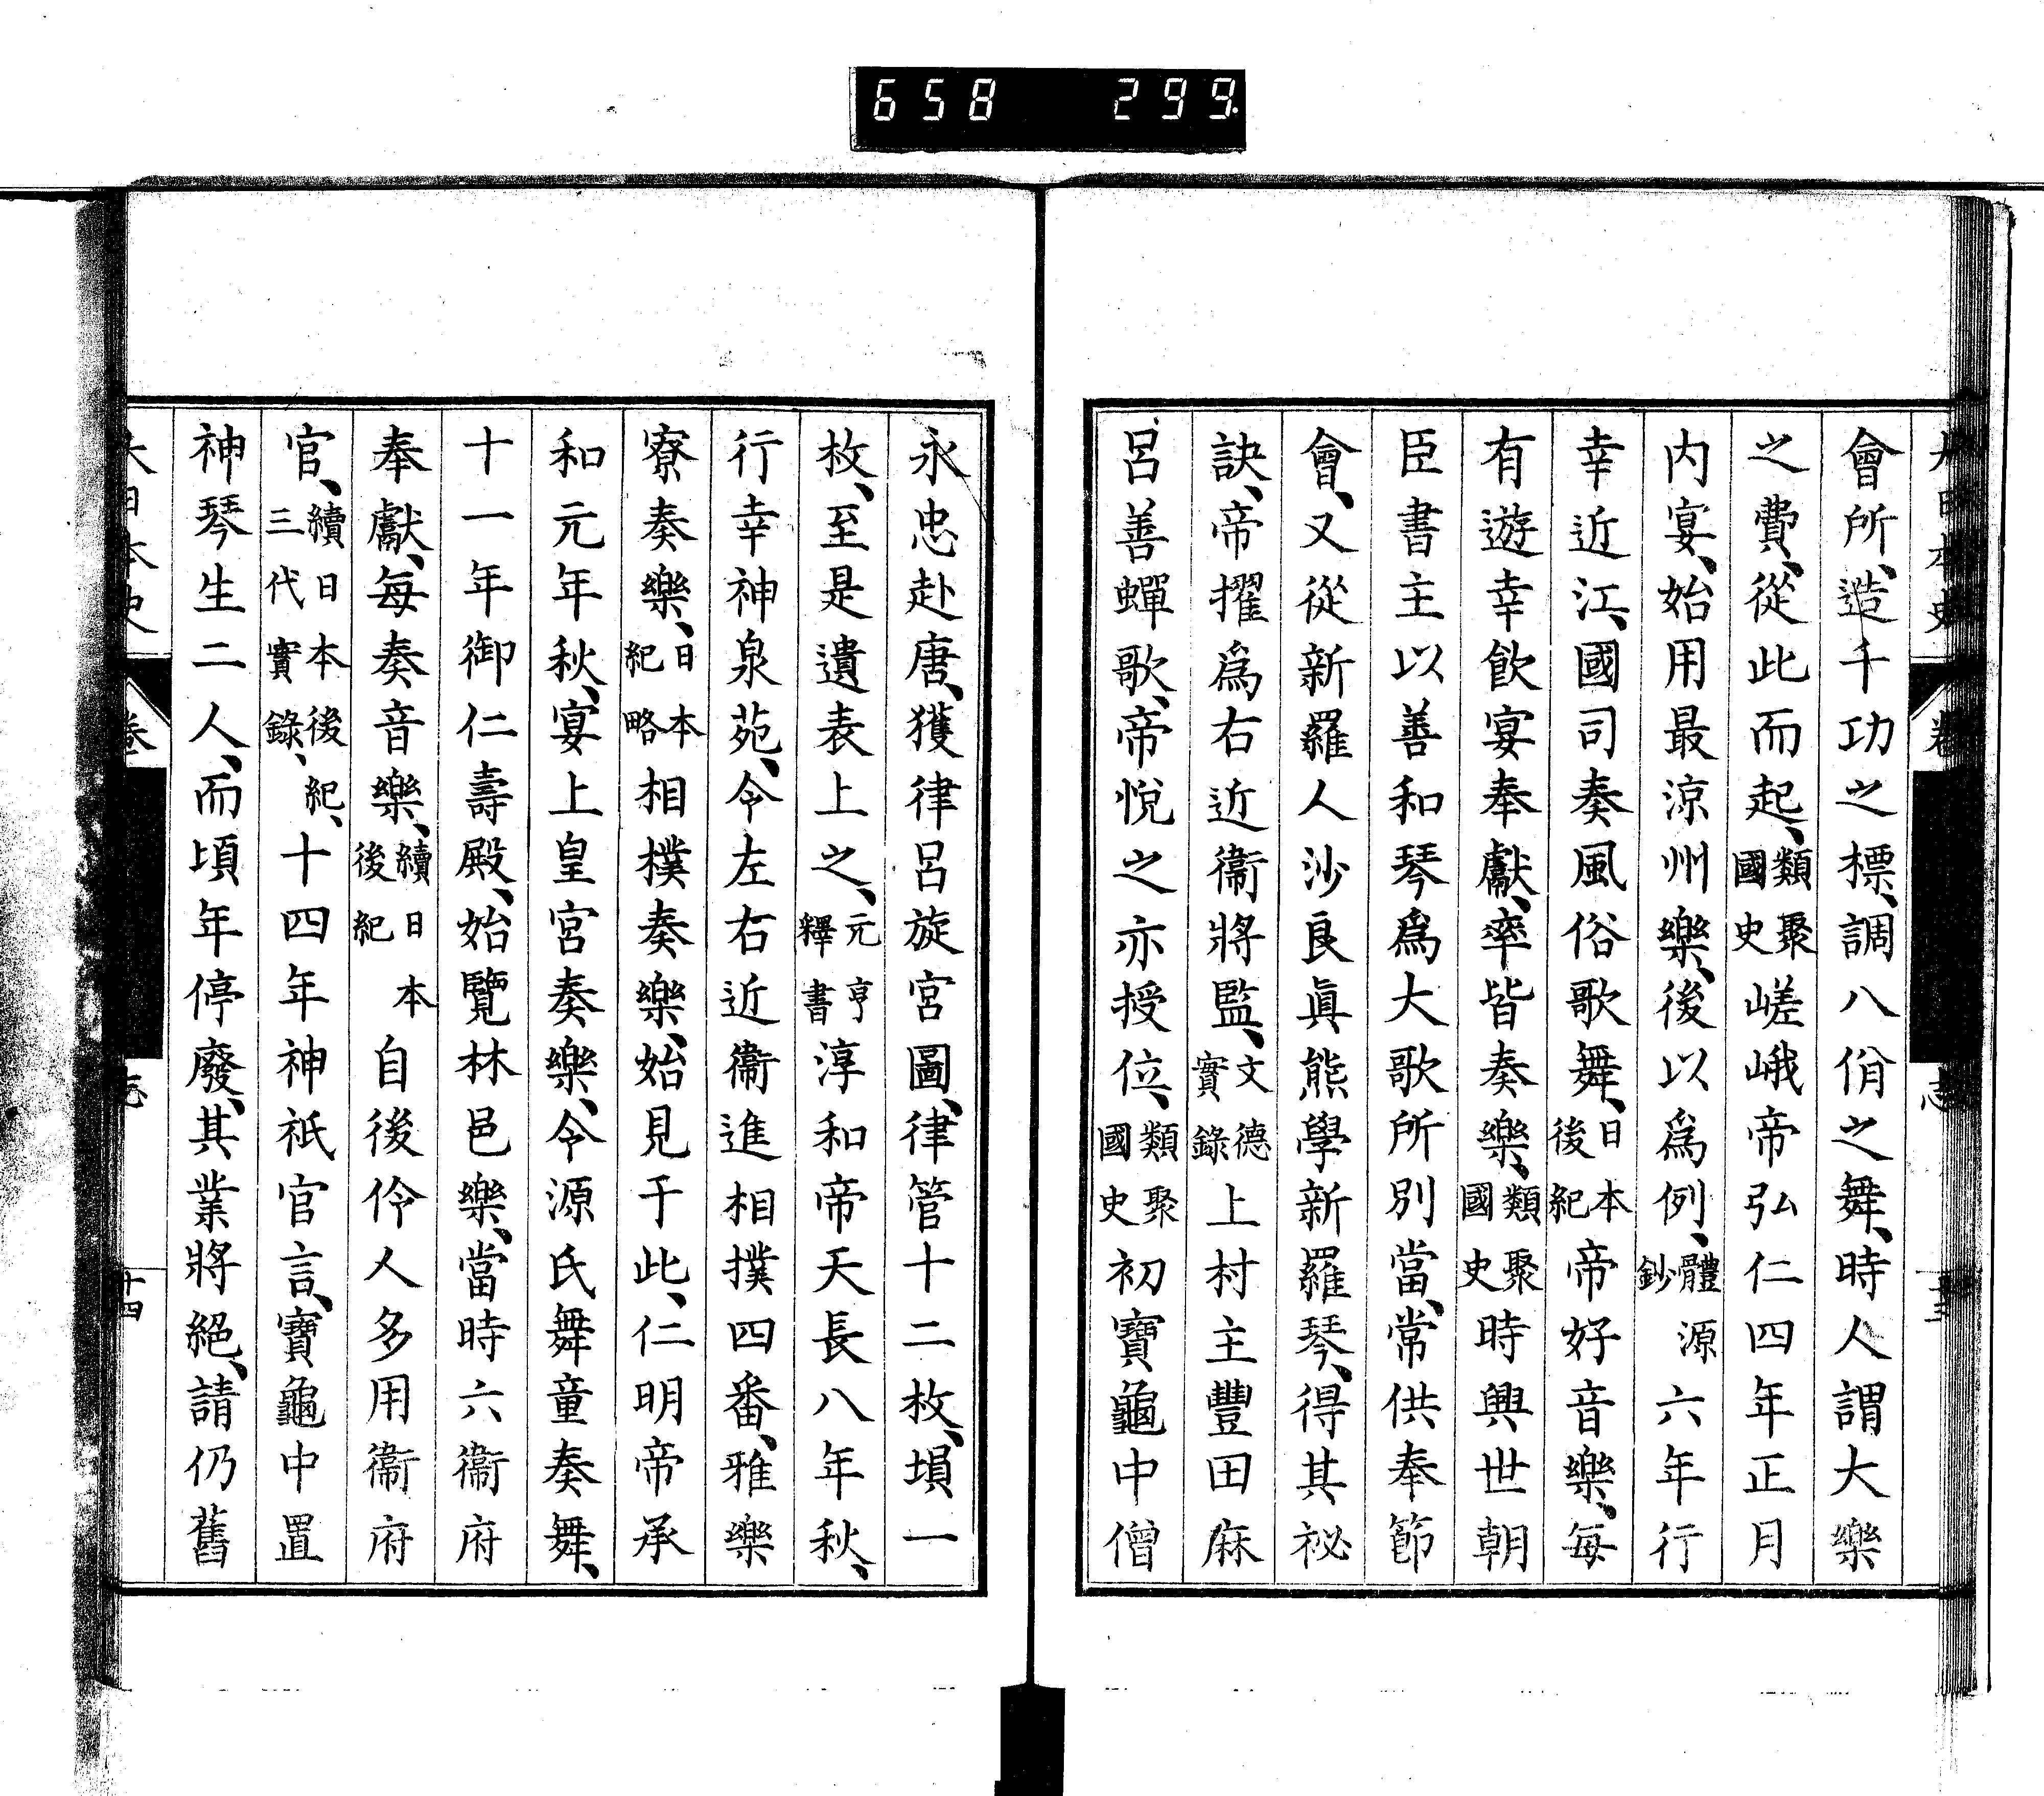 658 299.
會所、造千功之標、調八佾之舞、時人謂大樂
之費、從此而起、類聚國史嵯峨帝弘仁四年正月
内宴、始用最涼州樂、後以爲例、體源鈔六年行
幸近江、國司奏風俗歌舞、日本後紀帝好音樂、每
有遊幸飮宴奉獻、率皆奏樂、類聚國史時興世朝
臣書主以善和琴爲大歌所別當、常供奉節
會、又從新羅人沙良眞熊學新羅琴、得其祕
訣、帝擢爲右近衞將監、文德實錄上村主豐田麻
呂善蟬歌、帝悅之亦授位、類聚國史初寶龜中僧
永忠赴唐、獲律呂旋宮圖、律管十二枚、塤一
枚、至是遺表上之、元亨釋書淳和帝天長八年秋、
行幸神泉苑、令左右近衞進相撲四番、雅樂
寮奏樂、日本紀略相撲奏樂、始見于此、仁明帝承
和元年秋、宴上皇宮奏樂、令源氏舞童奏舞、
十一年御仁壽殿、始覽林邑樂、當時六衞府
奉獻、每奏音樂、續日本後紀自後伶人多用衞府
官、續日本後紀、三代實錄、十四年神祇官言、寶龜中置
神琴生二人、而頃年停廢、其業將絕、請仍舊
大日本史 卷 志 十四